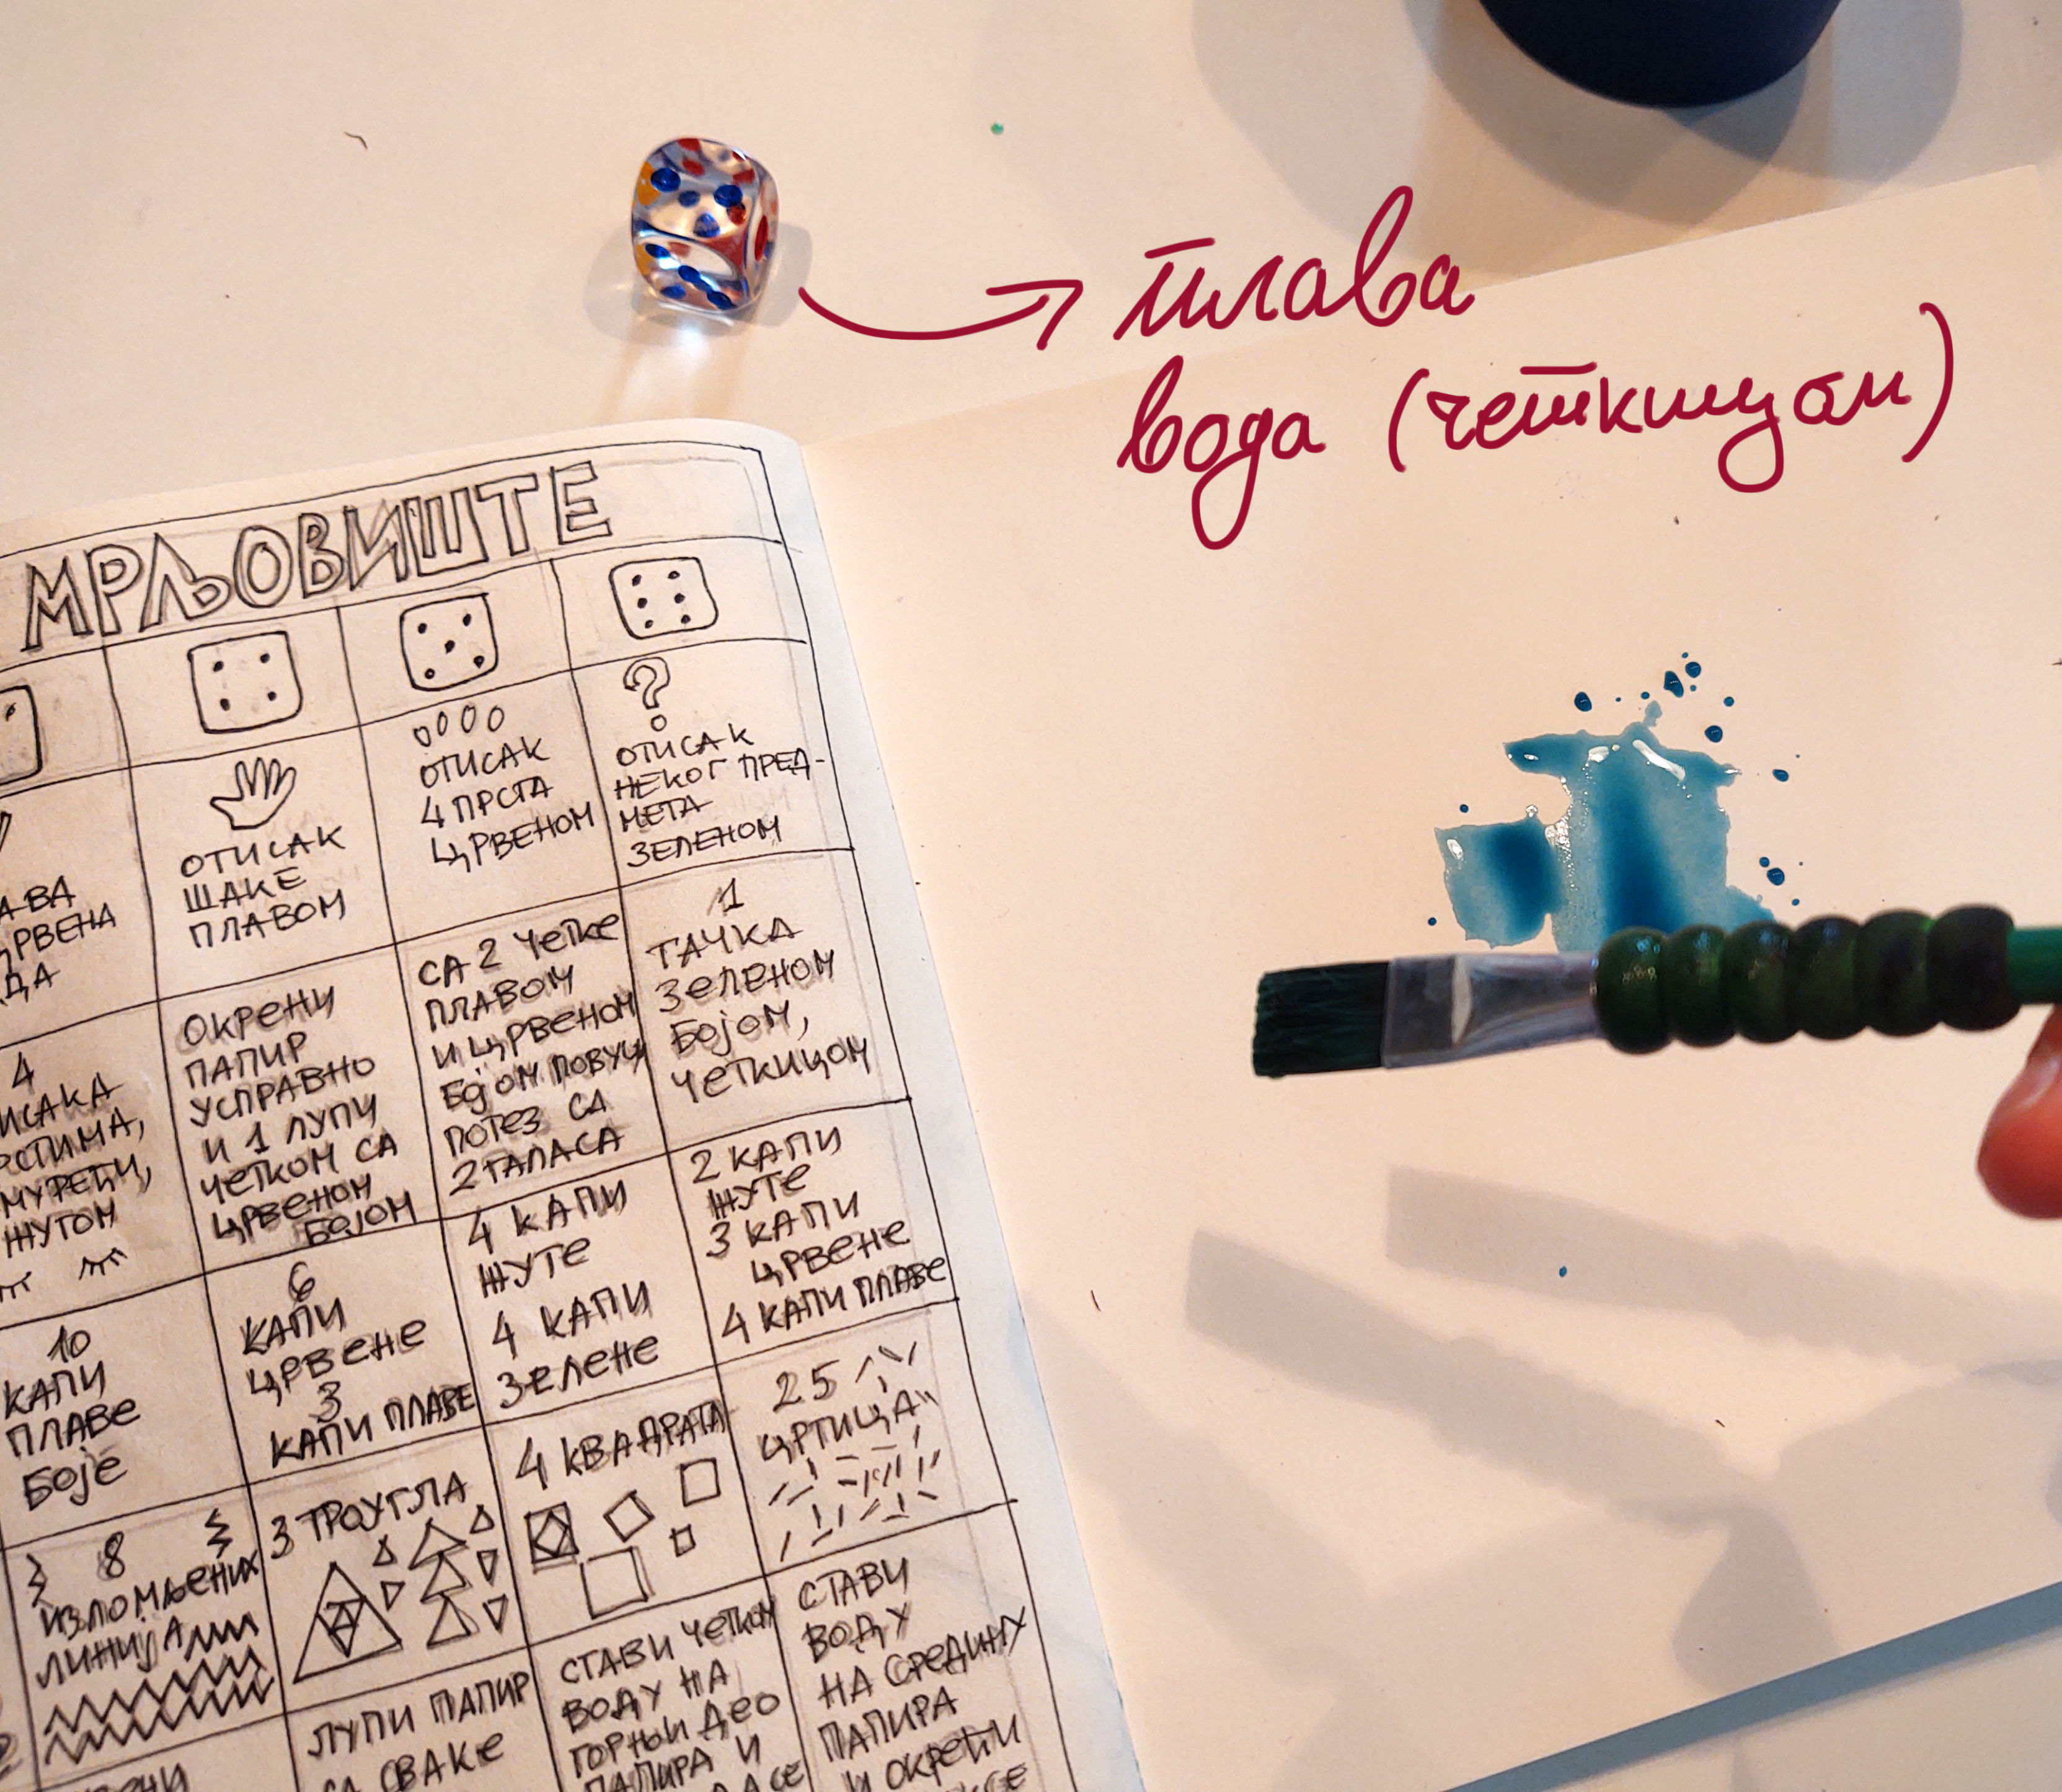 плава
вода (четкицом)
МРЉОВИШТЕ
ОТИСАК
ШАКЕ
ПЛАВОМ
ОТИСАК
4 ПРСТА
ЦРВЕНОМ
?
ОТИСАК
НЕКОГ ПРЕД-
МЕТА
ЗЕЛЕНОМ
4
ОКРЕНИ
ПАПИР
УСПРАВНО
И 1 ЛУПИ
ЧЕТКОМ СА
ЦРВЕНОМ
БОЈОМ
СА 2 ЧЕТКЕ
ПЛАВОМ
И ЦРВЕНОМ
БОЈОМ ПОВУЦИ
ПОТЕЗ СА
2 ТАЛАСА
1
ТАЧКА
ЗЕЛЕНОМ
БОЈОМ,
ЧЕТКИЦОМ
10
КАПИ
ПЛАВЕ
БОЈЕ
6
КАПИ
ЦРВЕНЕ
3
КАПИ ПЛАВЕ
4 КАПИ
ЖУТЕ
4 КАПИ
ЗЕЛЕНЕ
2 КАПИ
ЖУТЕ
3 КАПИ
ЦРВЕНЕ
4 КАПИ ПЛАВЕ
8
ИЗЛОМЉЕНИХ
ЛИНИЈА
3 ТРОУГЛА
4 КВАДРАТА
25
ЦРТИЦА
ЛУПИ ПАПИР
СВАКЕ
СТАВИ ЧЕТКОМ
ВОДУ НА
ГОРЊИ ДЕО
ПАПИРА И
СТАВИ
ВОДУ
НА СРЕДИНУ
ПАПИРА
И ОКРЕЋИ